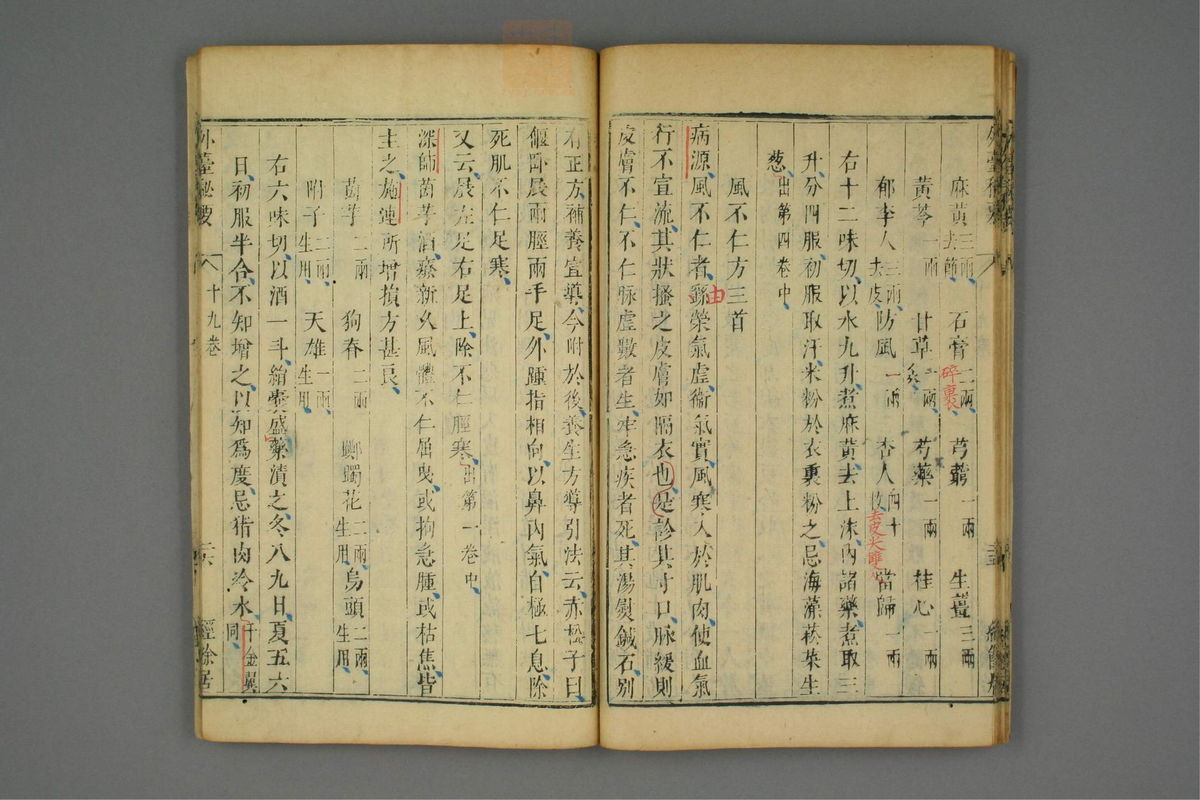 麻黃三兩去節 石膏二兩碎裹 芎藭一兩 生薑三兩
黃芩一兩 甘草二兩炙 芍藥一兩 桂心一兩
郁李人三兩去皮 防風一兩 杏人四十枚去皮尖 當歸一兩
右十二味切以水九升煮麻黃去上沫內諸藥煮取三
升分四服初服取汗米粉於衣裏粉之忌海藻菘菜生
葱出第四卷中
風不仁方三首
病源風不仁者由榮氣虛衞氣實風寒入於肌肉使血氣
行不宣流其狀搔之皮膚如隔衣也是診其寸口脉緩則
皮膚不仁不仁脉虛數者生牢急疾者死其湯熨鍼石別
有正方補養宣導今附於後養生方導引法云赤松子曰
偃卧展兩脛兩手足外踵指相向以鼻內氣自極七息除
死肌不仁足寒
又云展左足右足上除不仁脛寒出第一卷中
深師茵芋酒療新久風體不仁屈曳或拘急腫或枯焦皆
主之施連所增損方甚良
茵芋二兩 狗脊二兩 躑躅花二兩生用 烏頭二兩生用
附子二兩生用 天雄一兩生用
右六味切以酒一斗絹囊盛藥漬之冬八九日夏五六
日初服半合不知增之以知爲度忌猪肉冷水千金翼同
外臺秘要 十九卷 二六 經餘居